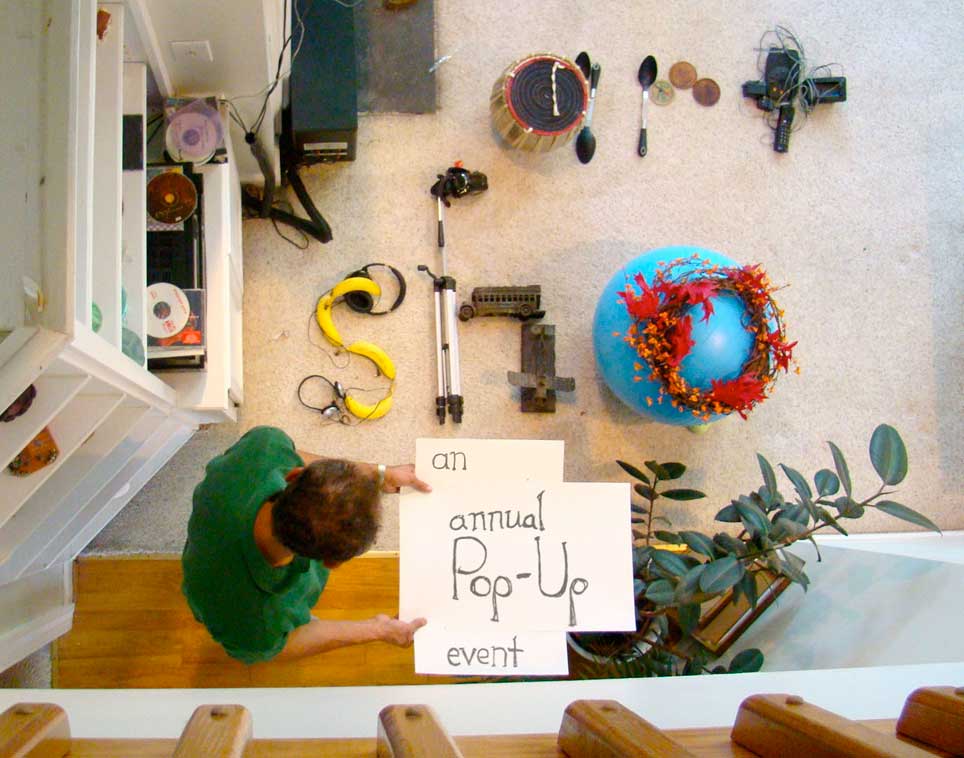 an
annual
Pop-Up
event